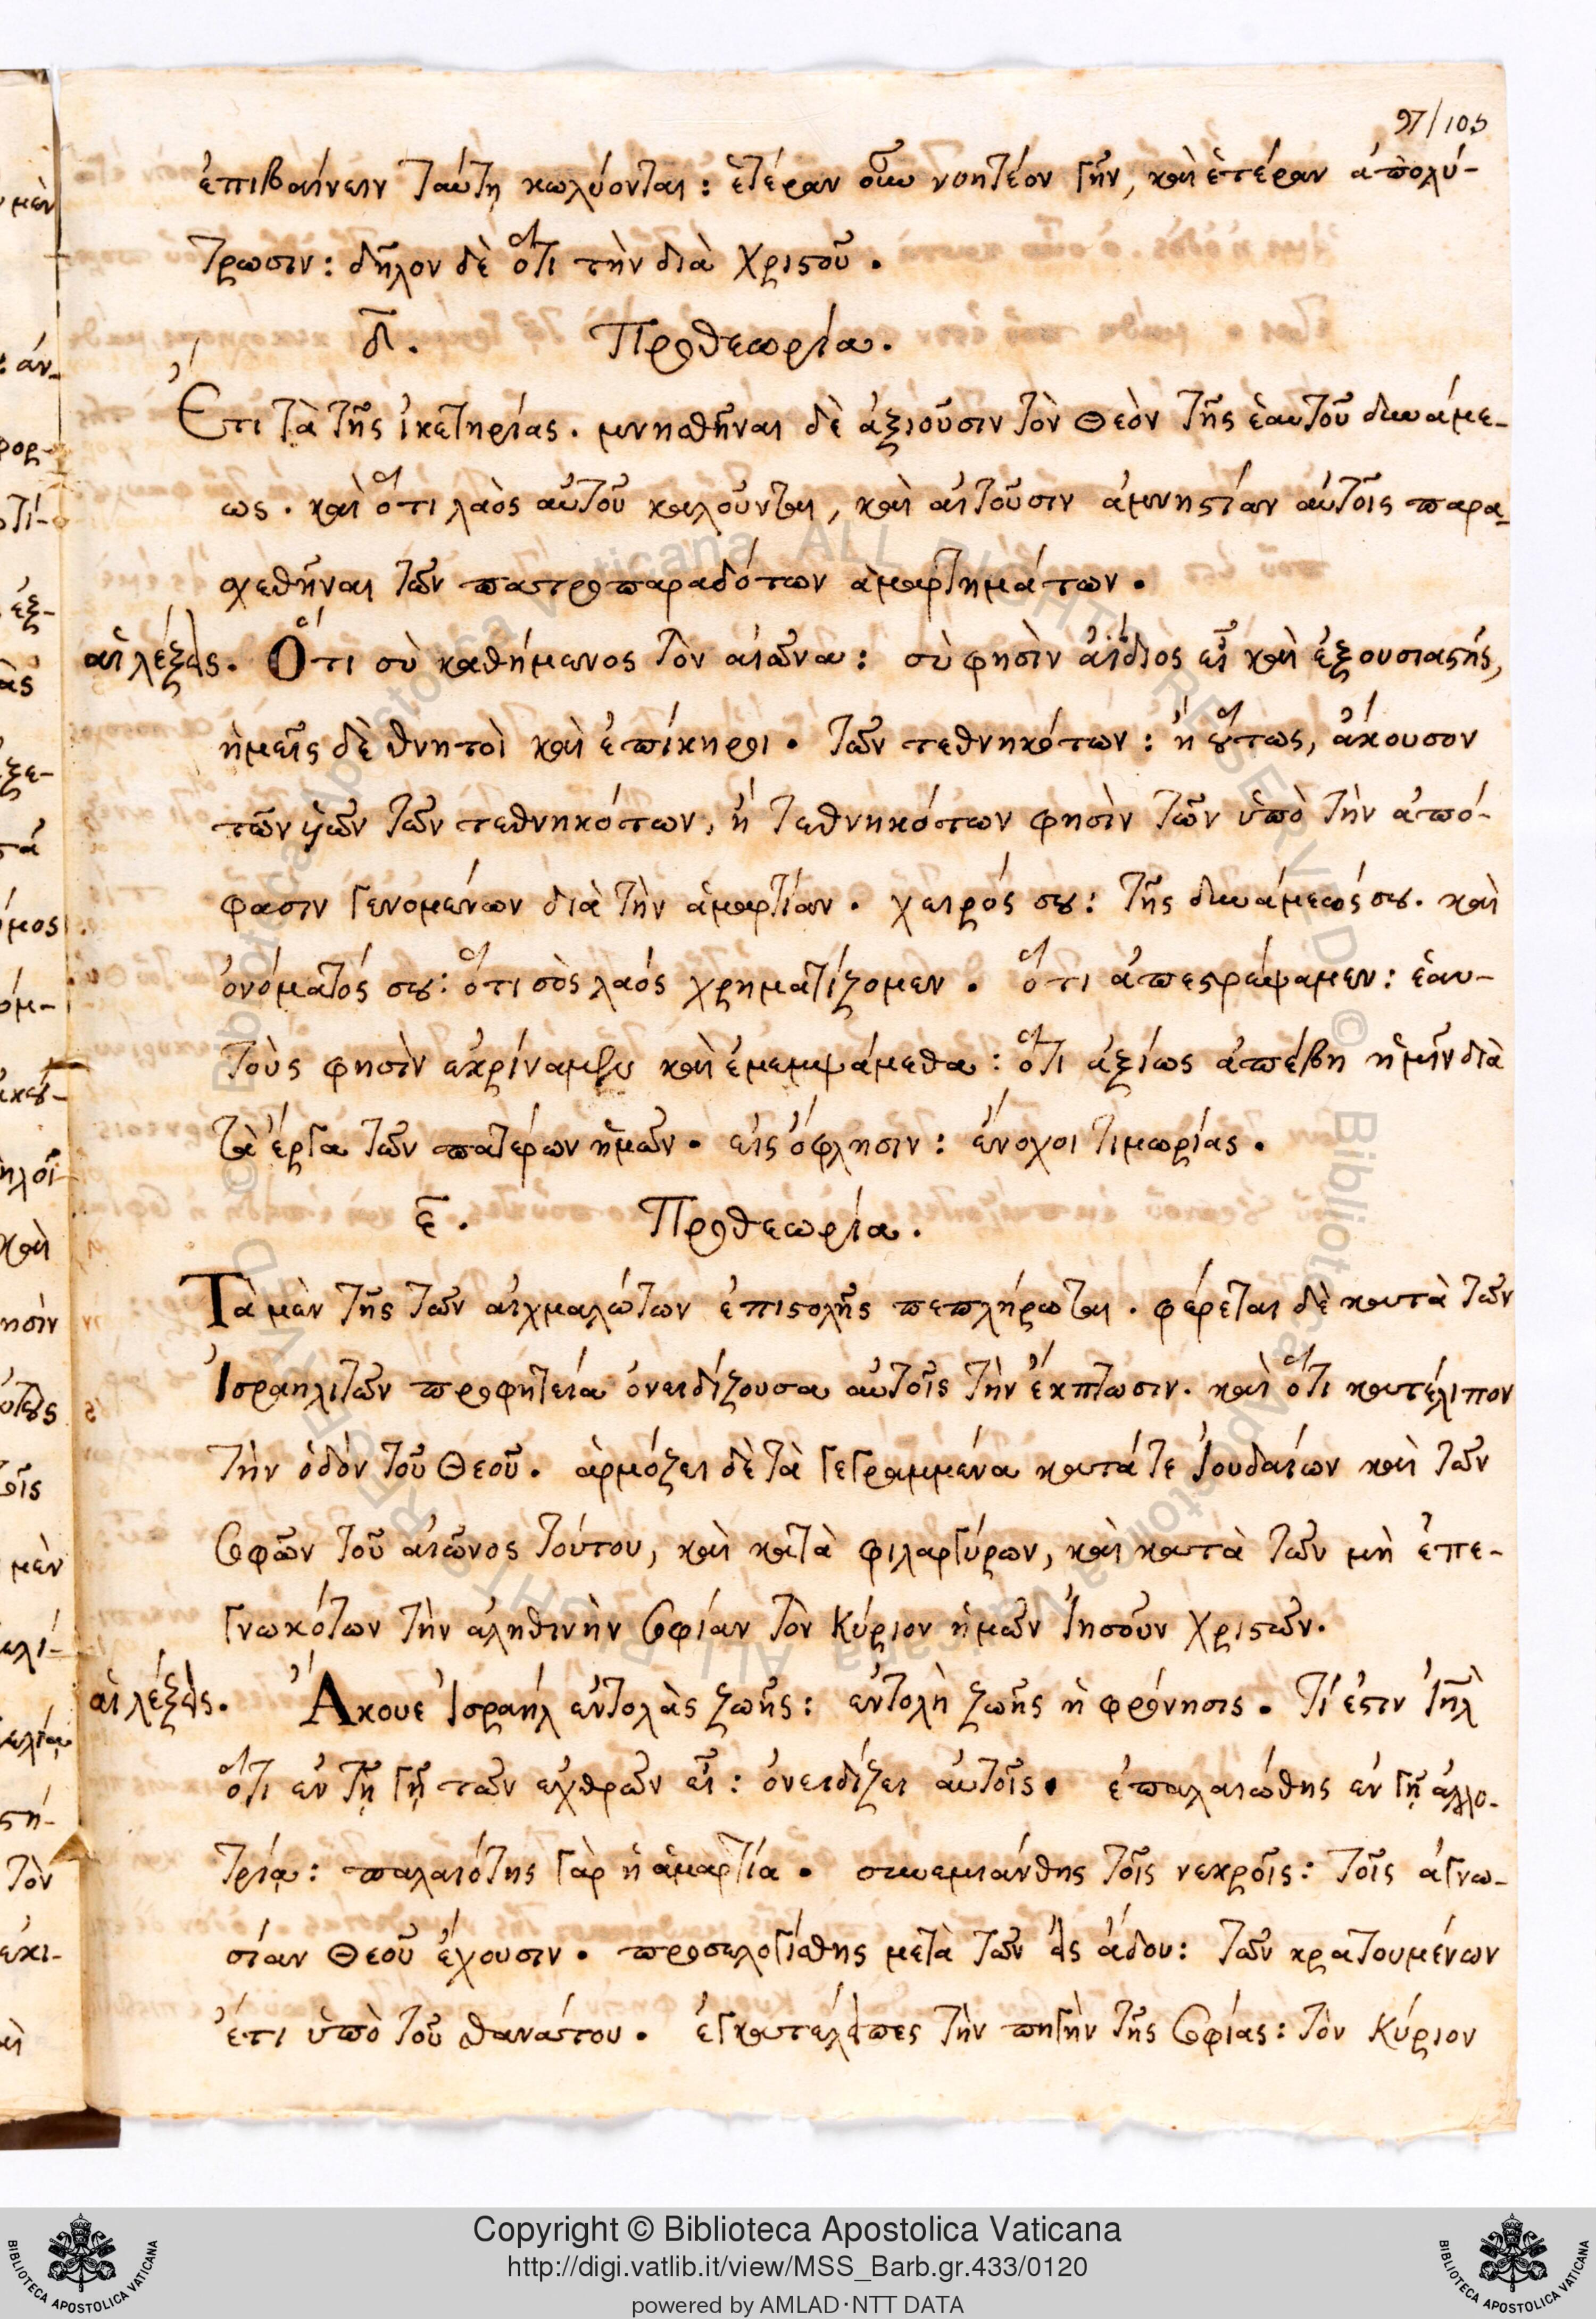 97/105
ἐπιβαίνειν ταύτῃ κωλύονται: ἑτέραν οὖν νοητέον γῆν, καὶ ἑτέραν ἀπολύ-
τρωσιν: δῆλον δὲ ὅτι τὴν διὰ Χριστοῦ.
δ. Προθεωρία.
Ἔτι τὰ τῆς ἱκετηρίας. μνησθῆναι δὲ ἀξιοῦσιν τὸν Θεὸν τῆς ἑαυτοῦ δυνάμε-
ως. καὶ ὅτι λαὸς αὐτοῦ καλοῦνται, καὶ αἰτοῦσιν ἀμνηστίαν αὐτοῖς παρα-
σχεθῆναι τῶν πατροπαραδότων ἁμαρτημάτων.
αἱ λέξεις. Ὅτι σὺ καθήμενος τὸν αἰῶνα: σὺ φησὶν ἀΐδιος εἶ καὶ ἐξουσιαστής,
ἡμεῖς δὲ θνητοὶ καὶ ἐπίκηροι. τῶν τεθνηκότων: ἢ οὕτως, ἄκουσον
τῶν υἱῶν τῶν τεθνηκότων, ἢ τεθνηκότων φησὶν τῶν ὑπὸ τὴν ἀπό-
φασιν γενομένων διὰ τὴν ἁμαρτίαν. χειρός σου: τῆς δυνάμεώς σου. καὶ
ὀνόματός σου: ὅτι σὸς λαός χρηματίζομεν. ὅτι ἀπεστρέψαμεν: ἑαυ-
τοὺς φησὶν ἐκρίναμεν καὶ ἐμεμψάμεθα: ὅτι ἀξίως ἀπέβη ἡμῖν διὰ
τὰ ἔργα τῶν πατέρων ἡμῶν. εἰς ὄφλησιν: ἔνοχοι τιμωρίας.
ε. Προθεωρία.
Τὰ μὲν τῆς τῶν αἰχμαλώτων ἐπιστολῆς πεπλήρωται. φέρεται δὲ κατὰ τῶν
Ἰσραηλιτῶν προφητεία ὀνειδίζουσα αὐτοῖς τὴν ἔκπτωσιν. καὶ ὅτι κατέλιπον
τὴν ὁδὸν τοῦ Θεοῦ. ἁρμόζει δὲ τὰ γεγραμμένα κατά τε Ἰουδαίων καὶ τῶν
σοφῶν τοῦ αἰῶνος τούτου, καὶ κατὰ φιλαργύρων, καὶ κατὰ τῶν μὴ ἐπε-
γνωκότων τὴν ἀληθινὴν σοφίαν τὸν Κύριον ἡμῶν Ἰησοῦν Χριστὸν.
αἱ λέξεις. Ἄκουε Ἰσραήλ ἐντολὰς ζωῆς: ἐντολὴ ζωῆς ἡ φρόνησις. Τί ἐστιν Ἰηλ
ὅτι ἐν τῇ γῇ τῶν ἐχθρῶν εἶ: ὀνειδίζει αὐτοῖς. ἐπαλαιώθης ἐν γῇ ἀλλο-
τρίᾳ: παλαιότης γὰρ ἡ ἁμαρτία. συνεμιάνθης τοῖς νεκροῖς: τοῖς ἀγνω-
σίαν Θεοῦ ἔχουσιν. προσελογίσθης μετὰ τῶν εἰς ᾅδου: τῶν κρατουμένων
ἔτι ὑπὸ τοῦ θανάτου. ἐγκατέλειπες τὴν πηγὴν τῆς σοφίας: τὸν Κύριον
Copyright © Biblioteca Apostolica Vaticana
http://digi.vatlib.it/view/MSS_Barb.gr.433/0120
powered by AMLAD·NTT DATA
BIBLIOTECA APOSTOLICA VATICANA
BIBLIOTECA APOSTOLICA VATICANA